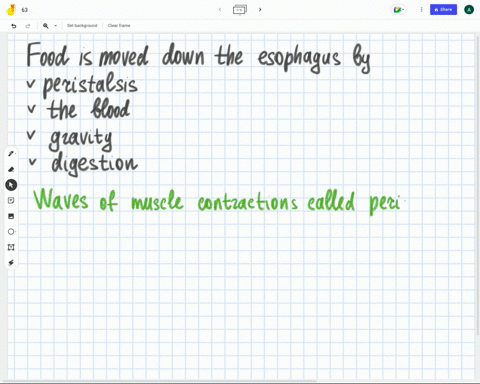 63
Share
A
Set background
Clear frame
Food is moved down the esophagus by
v peristalsis
v the blood
v gravity
v digestion
Waves of muscle contractions called peri